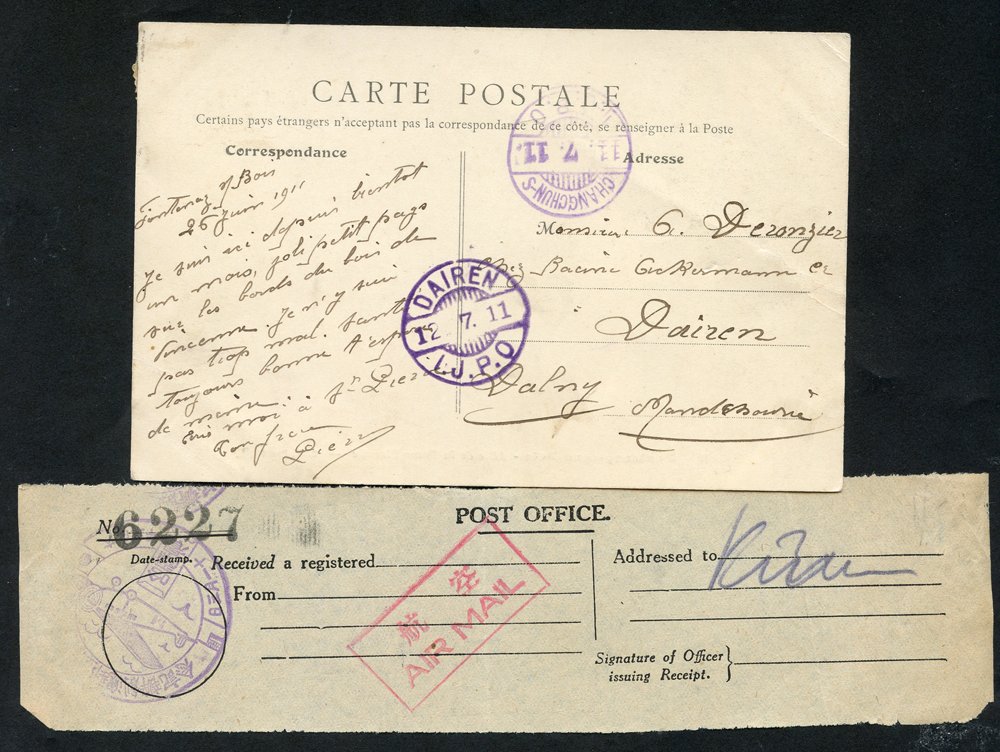 CARTE POSTALE
Certains pays étrangers n'acceptant pas la correspondance de ce côté, se renseigner à la Poste
Correspondance
Fontenay s/ Bois
26 juin 1911
Je suis ici depuis bientot
un mois, joli petit pays
sur les bords du bois de
Vincenne. Je n'y suis
pas trop mal. Santé
toujours bonne
de même
Ecris moi à
Ton frere
Pierre
Adresse
CHANGCHUN-S
11. 7. 11.
I.J.P.O
Monsieur G. Deronzier
chez Racine Ackermann et
Dairen
Dalny
DAIREN
12. 7. 11
I.J.P.O
No 6227
POST OFFICE.
Date-stamp.
Received a registered
From
航空
AIR MAIL
Addressed to
Signature of Officer
issuing Receipt.